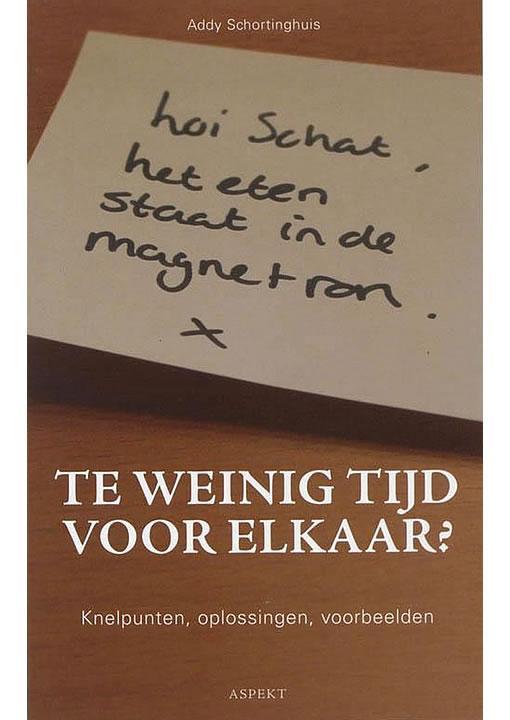 Addy Schortinghuis
hoi Schat,
het eten
staat in de
magnetron.
x
TE WEINIG TIJD
VOOR ELKAAR?
Knelpunten, oplossingen, voorbeelden
ASPEKT